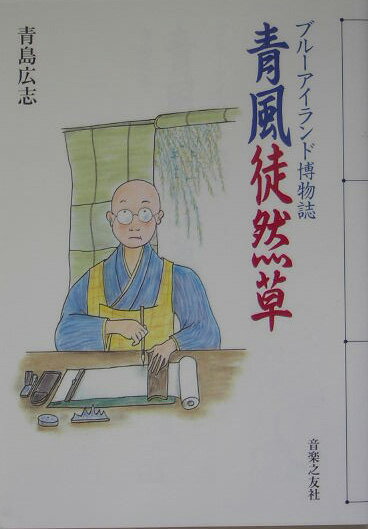 ブルーアイランド博物誌
青風徒然草
青島広志
音楽之友社